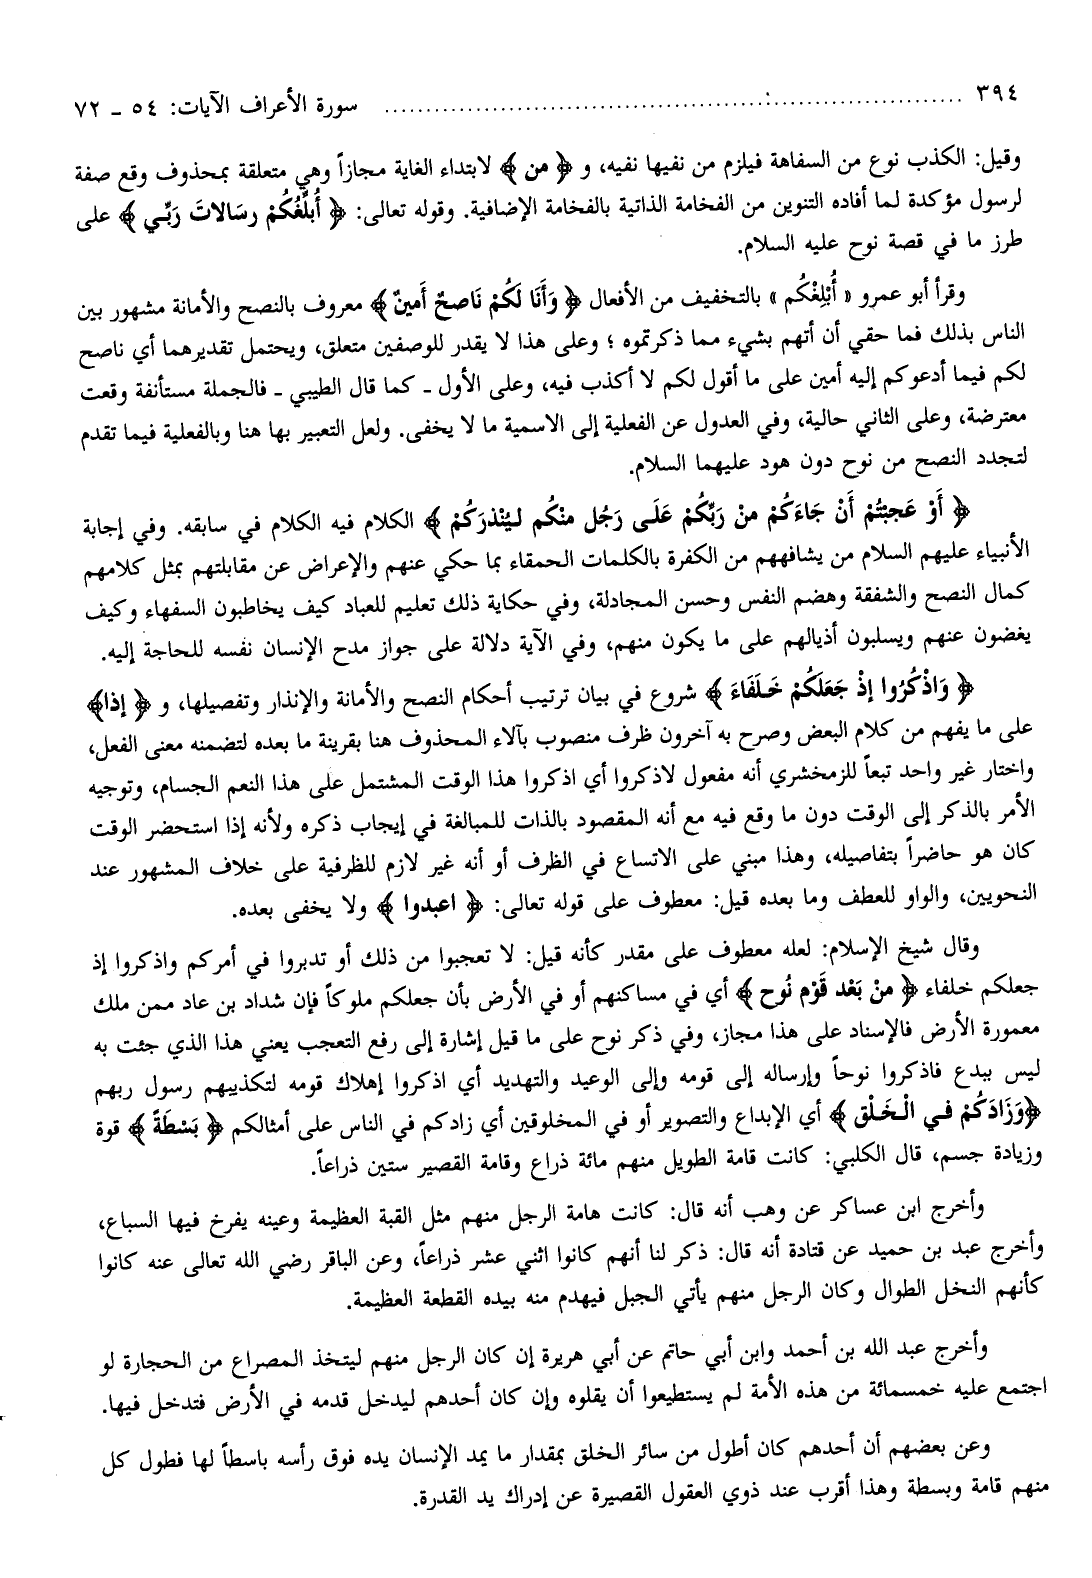 ٣٩٤ ........................................................................ سورة الأعراف الآيات: ٥٤ ـ ٧٢
وقيل: الكذب نوع من السفاهة فيلزم من نفيها نفيه، و ﴿ من ﴾ لابتداء الغاية مجازاً وهي متعلقة بمحذوف وقع صفة
لرسول مؤكدة لما أفاده التنوين من الفخامة الذاتية بالفخامة الإضافية. وقوله تعالى: ﴿ أُبلِّغُكُمْ رسَالاتَ رَبِّي ﴾ على
طرز ما في قصة نوح عليه السلام.
وقرأ أبو عمرو « أُبْلِغْكُم » بالتخفيف من الأفعال ﴿ وَأَنَا لَكُمْ نَاصحٌ أَمينٌ ﴾ معروف بالنصح والأمانة مشهور بين
الناس بذلك فما حقي أن أتهم بشيء مما ذكرتموه ؛ وعلى هذا لا يقدر للوصفين متعلق، ويحتمل تقديرهما أي ناصح
لكم فيما أدعوكم إليه أمين على ما أقول لكم لا أكذب فيه، وعلى الأول ـ كما قال الطيبي ـ فالجملة مستأنفة وقعت
معترضة، وعلى الثاني حالية، وفي العدول عن الفعلية إلى الاسمية ما لا يخفى. ولعل التعبير بها هنا وبالفعلية فيما تقدم
لتجدد النصح من نوح دون هود عليهما السلام.
﴿ أَوْ عَجبْتُمْ أَنْ جَاءَكُمْ منْ رَبِّكُمْ عَلَى رَجُل منْكُم ليُنْذرَكُمْ ﴾ الكلام فيه الكلام في سابقه. وفي إجابة
الأنبياء عليهم السلام من يشافههم من الكفرة بالكلمات الحمقاء بما حكي عنهم والإعراض عن مقابلتهم بمثل كلامهم
كمال النصح والشفقة وهضم النفس وحسن المجادلة، وفي حكاية ذلك تعليم للعباد كيف يخاطبون السفهاء وكيف
يغضون عنهم ويسلبون أذيالهم على ما يكون منهم، وفي الآية دلالة على جواز مدح الإنسان نفسه للحاجة إليه.
﴿ وَاذْكُرُوا إذْ جَعَلَكُمْ خَلَفَاءَ ﴾ شروع في بيان ترتيب أحكام النصح والأمانة والإنذار وتفصيلها، و ﴿ إذا﴾
على ما يفهم من كلام البعض وصرح به آخرون ظرف منصوب بآلاء المحذوف هنا بقرينة ما بعده لتضمنه معنى الفعل،
واختار غير واحد تبعاً للزمخشري أنه مفعول لاذكروا أي اذكروا هذا الوقت المشتمل على هذا النعم الجسام، وتوجيه
الأمر بالذكر إلى الوقت دون ما وقع فيه مع أنه المقصود بالذات للمبالغة في إيجاب ذكره ولأنه إذا استحضر الوقت
كان هو حاضراً بتفاصيله، وهذا مبني على الاتساع في الظرف أو أنه غير لازم للظرفية على خلاف المشهور عند
النحويين، والواو للعطف وما بعده قيل: معطوف على قوله تعالى: ﴿ اعبدوا ﴾ ولا يخفى بعده.
وقال شيخ الإسلام: لعله معطوف على مقدر كأنه قيل: لا تعجبوا من ذلك أو تدبروا في أمركم واذكروا إذ
جعلكم خلفاء ﴿ منْ بَعْد قَوْم نُوح ﴾ أي في مساكنهم أو في الأرض بأن جعلكم ملوكاً فإن شداد بن عاد ممن ملك
معمورة الأرض فالإسناد على هذا مجاز، وفي ذكر نوح على ما قيل إشارة إلى رفع التعجب يعني هذا الذي جئت به
ليس ببدع فاذكروا نوحاً وإرساله إلى قومه وإلى الوعيد والتهديد أي اذكروا إهلاك قومه لتكذيبهم رسول ربهم
﴿وَزَادَكُمْ في الْخَلْق ﴾ أي الإبداع والتصوير أو في المخلوقين أي زادكم في الناس على أمثالكم ﴿ بَسْطَةً ﴾ قوة
وزيادة جسم، قال الكلبي: كانت قامة الطويل منهم مائة ذراع وقامة القصير ستين ذراعاً.
وأخرج ابن عساكر عن وهب أنه قال: كانت هامة الرجل منهم مثل القبة العظيمة وعينه يفرخ فيها السباع،
وأخرج عبد بن حميد عن قتادة أنه قال: ذكر لنا أنهم كانوا اثني عشر ذراعاً، وعن الباقر رضي الله تعالى عنه كانوا
كأنهم النخل الطوال وكان الرجل منهم يأتي الجبل فيهدم منه بيده القطعة العظيمة.
وأخرج عبد الله بن أحمد وابن أبي حاتم عن أبي هريرة إن كان الرجل منهم ليتخذ المصراع من الحجارة لو
اجتمع عليه خمسمائة من هذه الأمة لم يستطيعوا أن يقلوه وإن كان أحدهم ليدخل قدمه في الأرض فتدخل فيها.
وعن بعضهم أن أحدهم كان أطول من سائر الخلق بمقدار ما يمد الإنسان يده فوق رأسه باسطاً لها فطول كل
منهم قامة وبسطة وهذا أقرب عند ذوي العقول القصيرة عن إدراك يد القدرة.